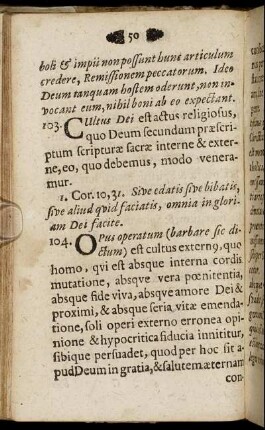 50
boli & impii non possunt hunc articulum
credere, Remissionem peccatorum. Ideo
Deum tanquam hostem oderunt, non in-
vocant eum, nihil boni ab eo expectant.
103. CUltus Dei est actus religiosus,
quo Deum secundum præscri-
ptum scripturæ sacræ interne & exter-
ne, eo, quo debemus, modo venera-
mur.
1. Cor. 10, 31. Sive edatis sive bibatis,
sive aliud quid faciatis, omnia in glori-
am Dei facite.
104. OPus operatum (barbare sic di-
ctum) est cultus externꝰ, quo
homo, qvi est absque interna cordis
mutatione, absqve vera pœnitentia,
absque fide viva, absqve amore Dei &
proximi, & absque seria vitæ emenda-
tione, soli operi externo erronea opi-
nione & hypocritica fiducia innititur,
sibique persuadet, quod per hoc sit a-
pud Deum in gratia, & salutem æternam
con-